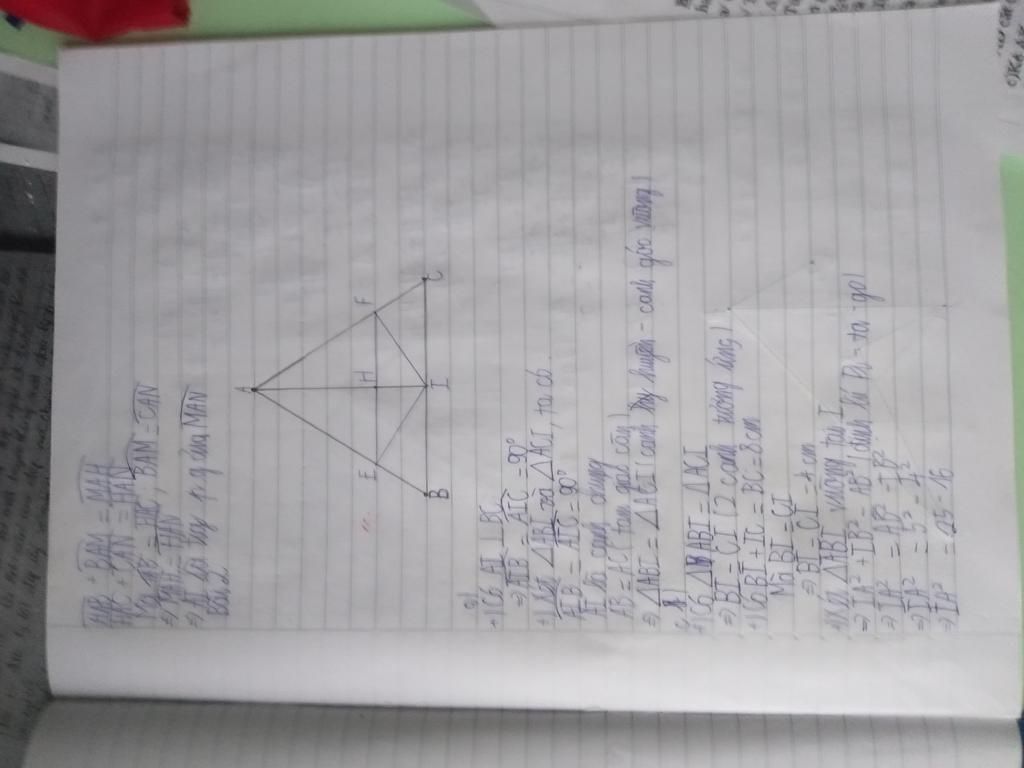 HAB + BAM = MAH
HAC + CAN = HAN
Mà HAB = HAC, BAM = CAN
=> MAH = HAN
=> AI là tia
của MAN
Bài 2
A
E
H
F
B
I
C
a)
+) Có AI ⊥ BC
=> AIB = AIC = 90°
+) Xét △ABI và △ACI, ta có
AIB = AIC = 90°
AI là cạnh chung
AB = AC ( tam giác cân)
=> △ABC = △ACI ( cạnh huyền - cạnh góc vuông )
+) Có △ABI = △ACI
=> BI = CI ( 2 cạnh tương ứng )
+) Có BI + IC = BC = 8cm
Mà BI = CI
=> BI = CI = 4 cm
+) Xét △ABI vuông tại I
=> IA² + IB² = AB² ( định lí Pi - ta - go)
=> IA² = AB² - IB²
=> IA² = 5² - 4²
=> IA² = 25 - 16